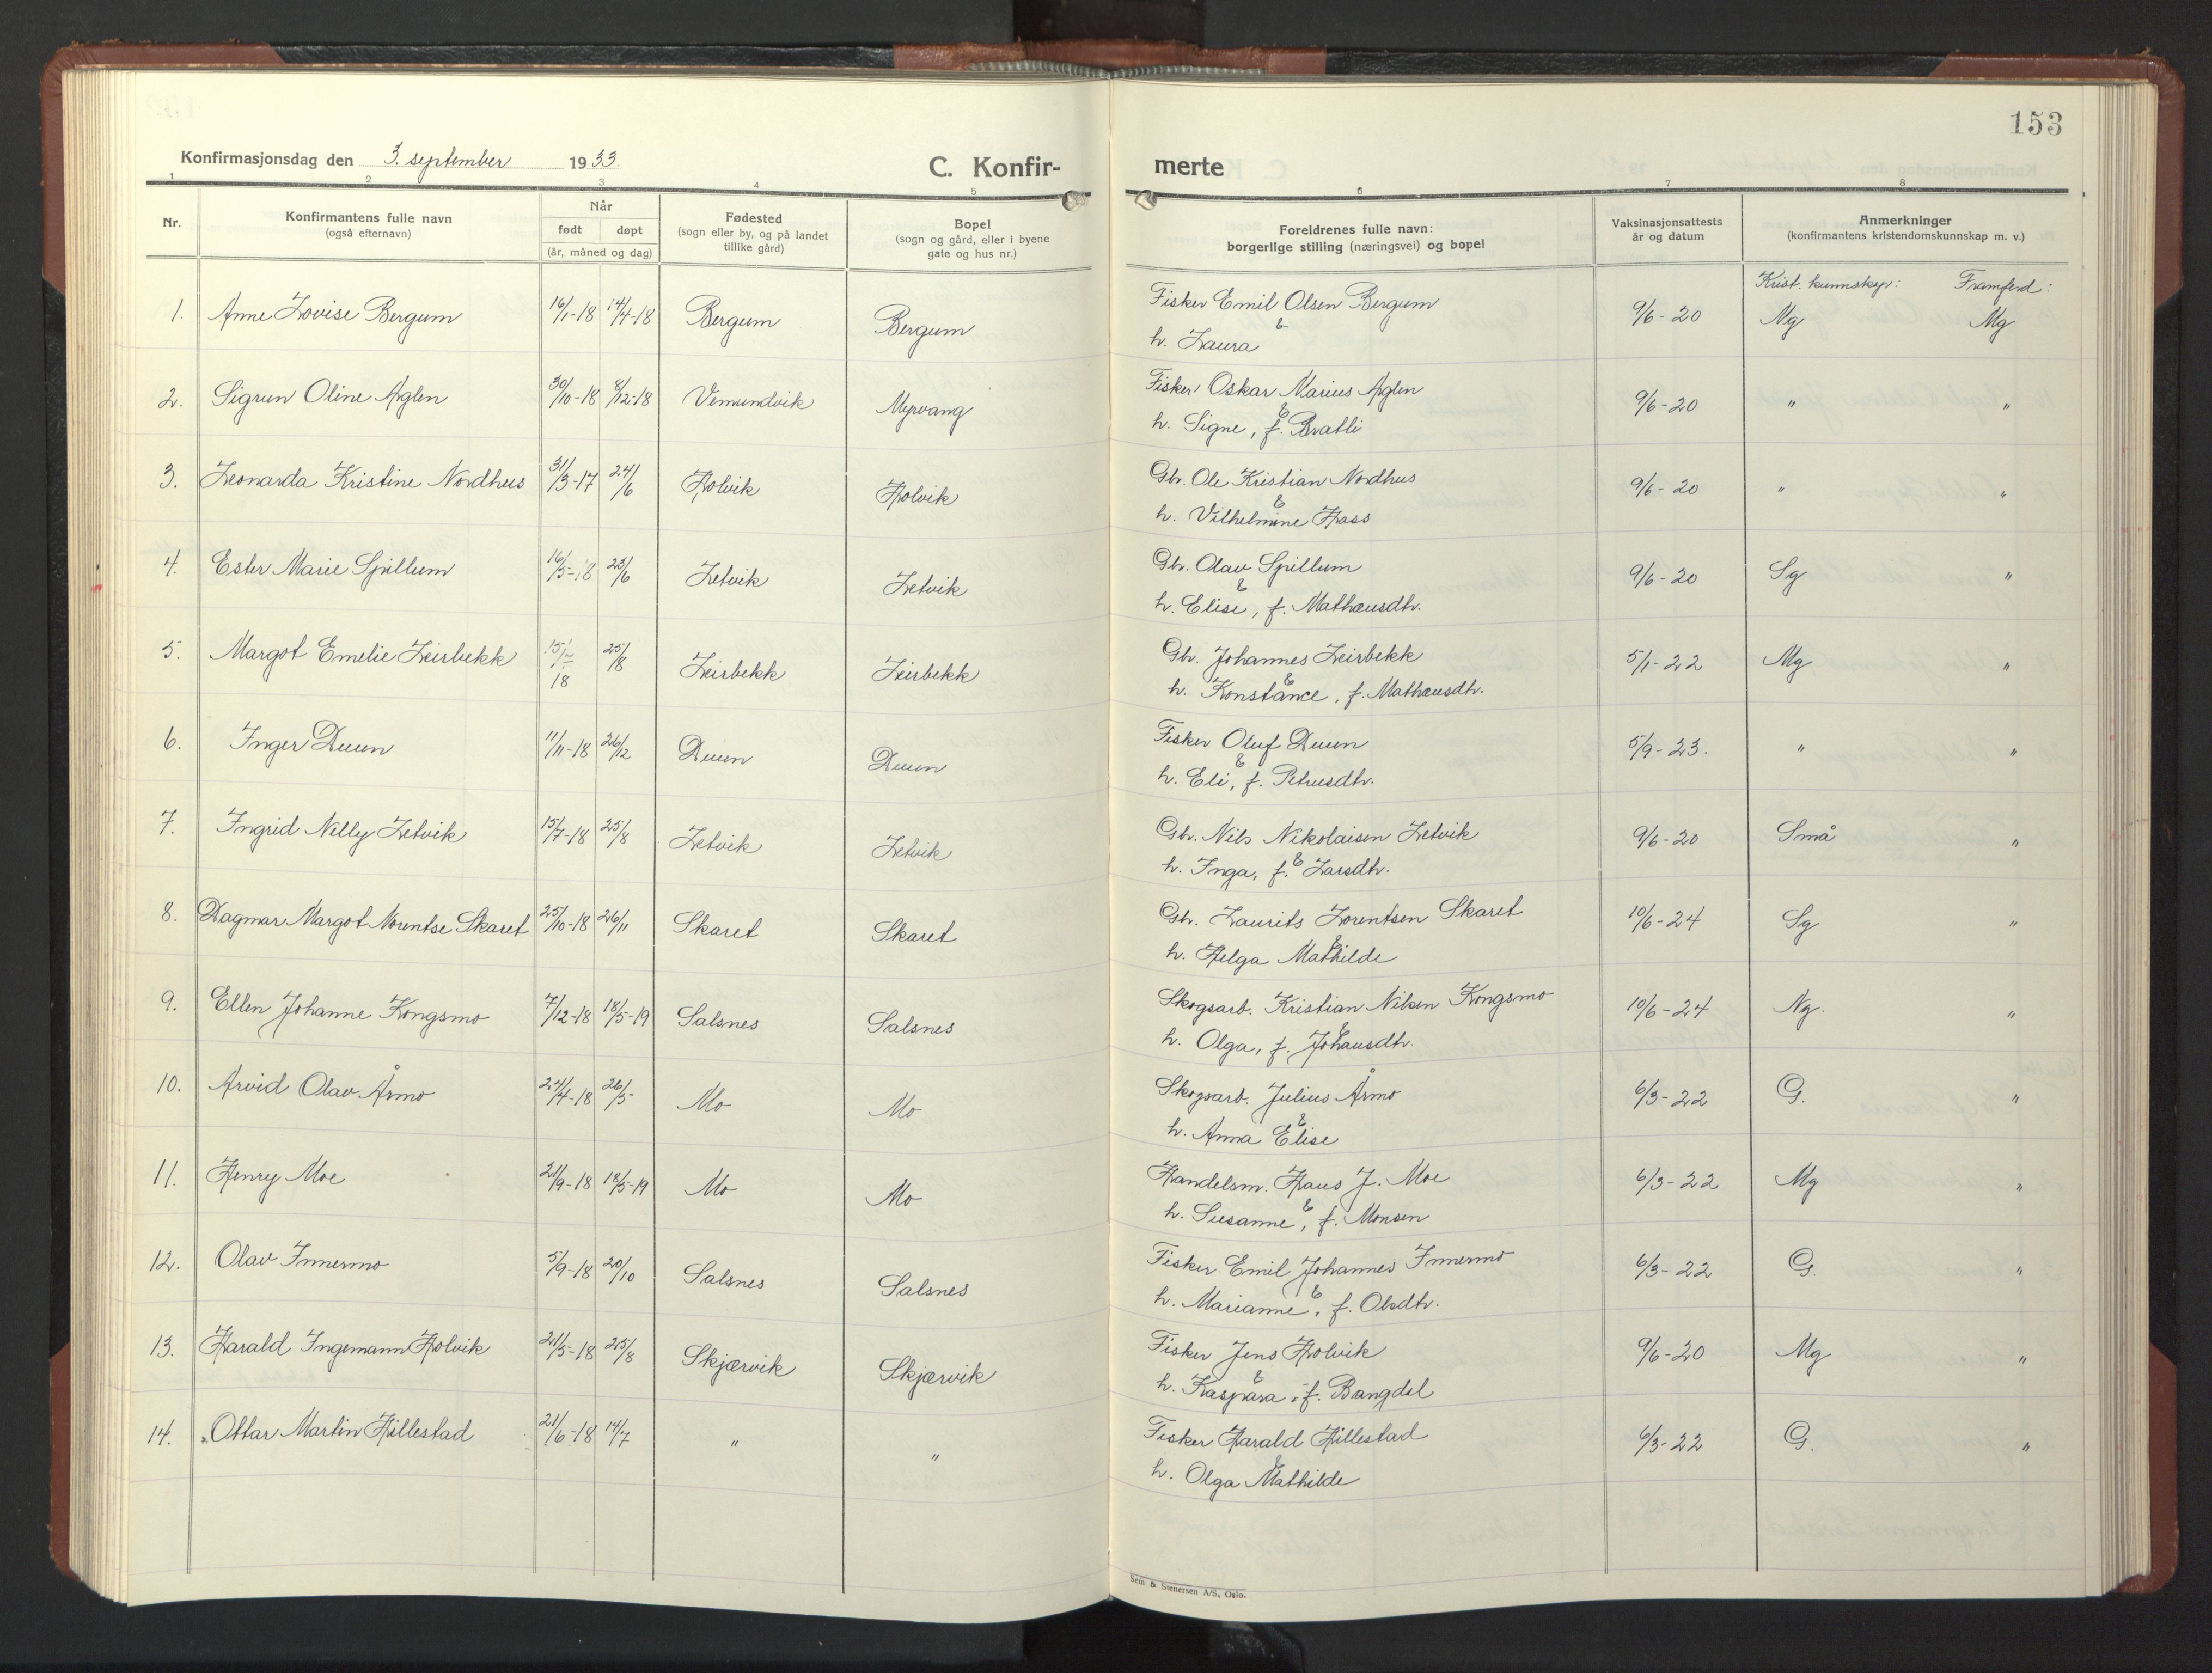 153
Konfirmasjonsdag den 3. september 1933
C. Konfir-
merte
1 2 3 4 5 6 7 8
Nr. Konfirmantens fulle navn (også efternavn) Når født døpt (år, måned og dag) Fødested (sogn eller by, og på landet tillike gård) Bopel (sogn og gård, eller i byene gate og hus nr.) Foreldrenes fulle navn: borgerlige stilling (næringsvei) og bopel Vaksinasjonsattests år og datum Anmerkninger (konfirmantens kristendomskunnskap m. v.)
Krist. kunnskap: Framferd:
1. Anne Lovise Bergum 16/1-18 14/4-18 Bergum Bergum Fisker Emil Olsen Bergum 9/6-20 Ng Mg
& h. Laura
2. Sigrun Oline Aglen 30/10-18 8/12-18 Vemundvik Myrvang Fisker Oskar Marius Aglen 9/6-20 " "
& h. Signe, f. Bratli
3. Leonarda Kristine Nordhus 31/3-17 24/6 Holvik Holvik Gbr. Ole Kristian Nordhus 9/6-20 " "
& h. Vilhelmine Hass
4. Ester Marie Spillum 16/5-18 23/6 Letvik Letvik Gbr. Olav Spillum 9/6-20 Sg "
& h. Elise, f. Mathæusdtr.
5. Margot Emelie Leirbekk 18 25/8 Leirbekk Leirbekk Gbr. Johannes Leirbekk 5/1-22 Mg "
& h. Konstance, f. Mathæusdtr.
6. Inger Duun 11/11-18 26/12 Duun Duun Fisker Oluf Duun 5/9-23. " "
& h. Eli, f. Petrusdtr.
7. Ingrid Nelly Letvik 15/7-18 25/8 Letvik Letvik Gbr. Nils Nikolaisen Letvik 9/6-20 Små "
& h. Inga, f. Larsdtr.
8. Dagmar Margot Norentse Skaret 25/10-18 26/11 Skaret Skaret Gbr. Laurits Lorentsen Skaret 10/6-24 Sg "
& h. Helga Mathilde
9. Ellen Johanne Kongsmo 7/12-18 18/5-19 Salsnes Salsnes Skogsarb. Kristian Nilsen Kongsmo 10/6-24 Ng. "
& h. Olga, f. Johansdtr.
10. Arvid Olav Årmo 24/4-18 26/5 Mo Mo Skogsarb. Julius Årmo 6/3-22 G. "
& h. Anna Elise
11. Henry Moe 21/9-18 18/5-19 Mo Mo Handelsm. Hans J. Moe 6/3-22 Mg "
& h. Susanne, f. Monsen
12. Olav Innermo 5/9-18 20/10 Salsnes Salsnes Fisker Emil Johannes Innermo 6/3-22 G. "
& h. Marianne, f. Olsdtr.
13. Harald Ingemann Holvik 21/5-18 25/8 Skjærvik Skjærvik Fisker Jens Holvik 9/6-20 Mg "
& h. Kaspara, f. Bangdal
14. Ottar Martin Hillestad 21/6-18 14/7 " " Fisker Harald Hillestad 6/3-22 G. "
& h. Olga Mathilde
Sem & Stenersen A/S, Oslo.